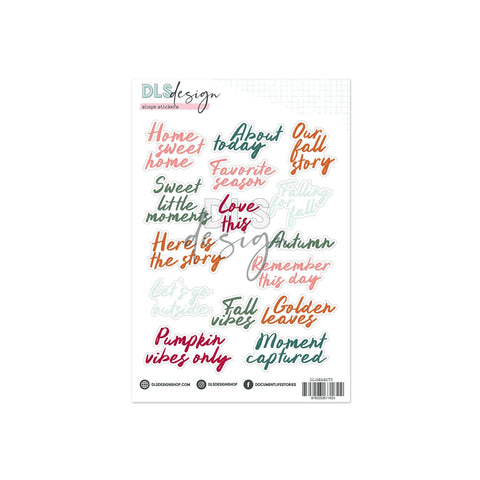 DLS design
shape stickers
Home sweet home
About today
Our fall story
Favorite season
Sweet little moments
Love this
Falling for fall
DLS design
Here is the story
Autumn
Remember this day
Let's go outside
Fall vibes
Golden leaves
Pumpkin vibes only
Moment captured
DLSDESIGNSHOP.COM
DLSDESIGNSHOP
DOCUMENTLIFESTORIES